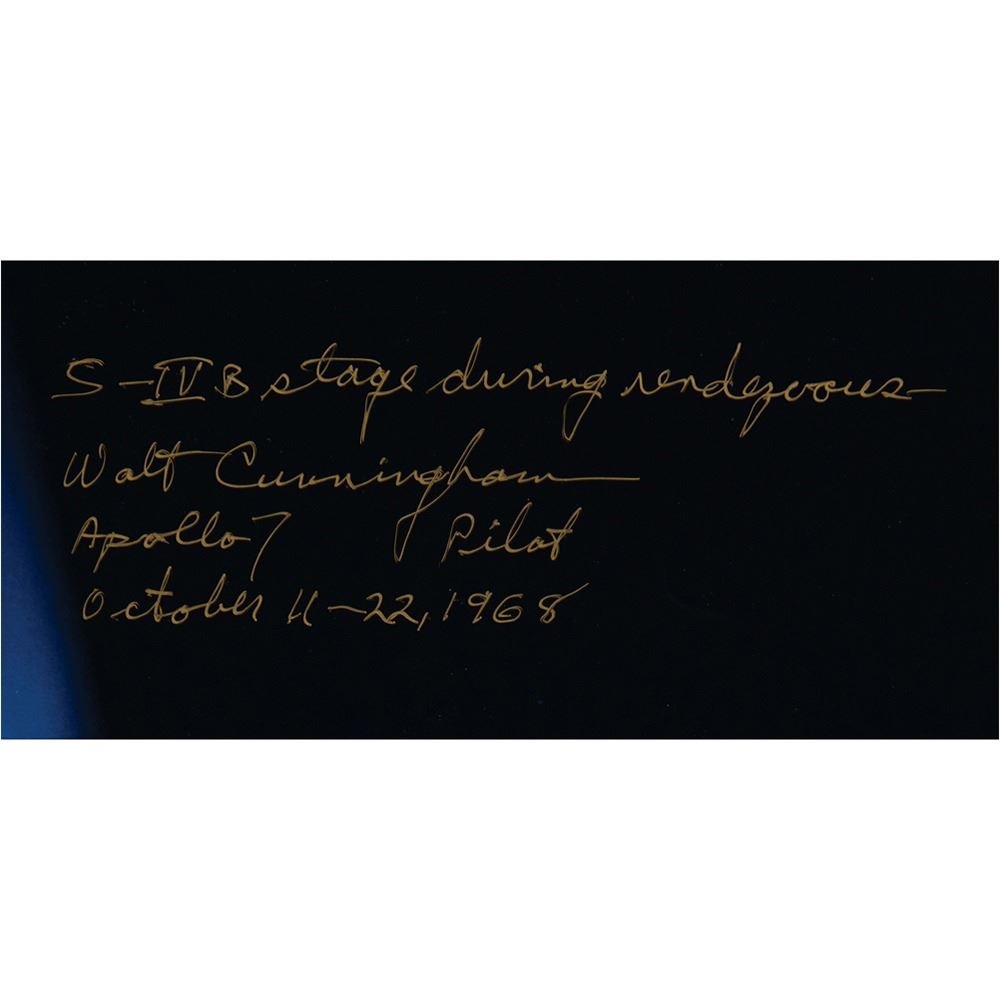 S-IVB stage during rendezvous-
Walt Cunningham
Apollo 7 Pilot
October 11-22, 1968